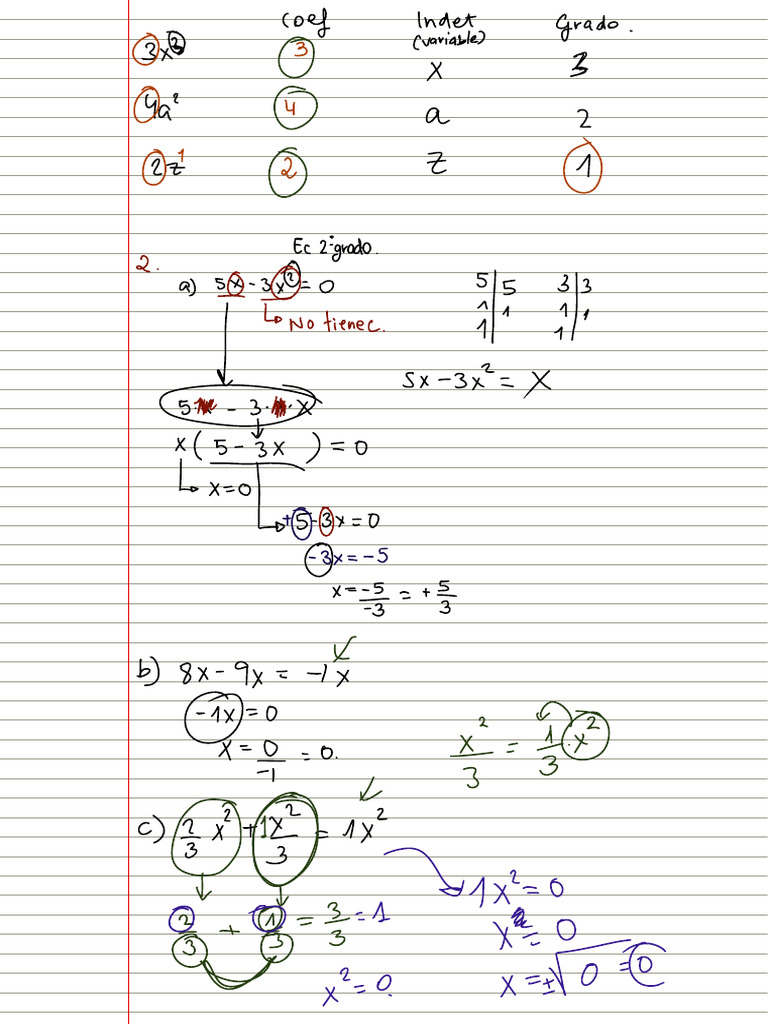 Coef Indet Grado.
(variable)
3x³ 3 x 3
4a² 4 a 2
2z¹ 2 z 1
Ec 2º grado.
2.
a) 5x - 3x² = 0
No tienec.
5 | 5 3 | 3
1 | 1 1 | 1
1 | 1 |
5x - 3x² = X
5· - 3· ·x
x ( 5 - 3x ) = 0
x = 0
+5 - 3x = 0
-3x = -5
x = -5/-3 = + 5/3
b) 8x - 9x = -1x ✓
-1x = 0
x = 0/-1 = 0.
x²/3 = 1/3 · x²
c) 2/3 x² + 1x²/3 = 1x² ✓
1x² = 0
2/3 + 1/3 = 3/3 = 1
x = 0
x² = 0.
x = ±√0 = 0